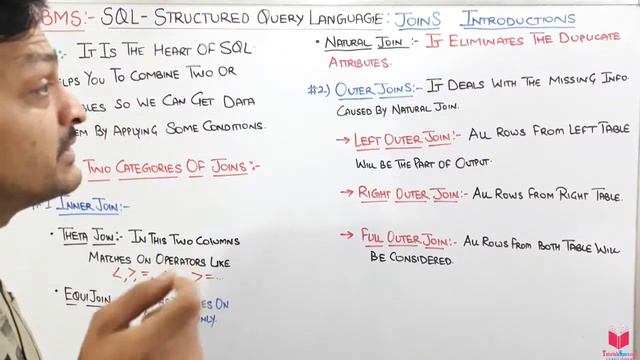 BMS:- SQL - STRUCTURED QUERY LANGUAGE: JOINS INTRODUCTIONS
:- IT IS THE HEART OF SQL
HELPS YOU TO COMBINE TWO OR
SO WE CAN GET DATA
BY APPLYING SOME CONDITIONS.
TWO CATEGORIES OF JOINS:-
INNER JOIN:-
• THETA JOIN:- IN THIS TWO COLUMNS
MATCHES ON OPERATORS LIKE
<, >, = >= ...
• EQUI JOIN
ON
ONLY.
• NATURAL JOIN:- IT ELIMINATES THE DUPLICATE
ATTRIBUTES.
#2.) OUTER JOINS:- IT DEALS WITH THE MISSING INFO.
CAUSED BY NATURAL JOIN.
→ LEFT OUTER JOIN:- ALL ROWS FROM LEFT TABLE
WILL BE THE PART OF OUTPUT.
→ RIGHT OUTER JOIN:- ALL ROWS FROM RIGHT TABLE.
→ FULL OUTER JOIN:- ALL ROWS FROM BOTH TABLE WILL
BE CONSIDERED.